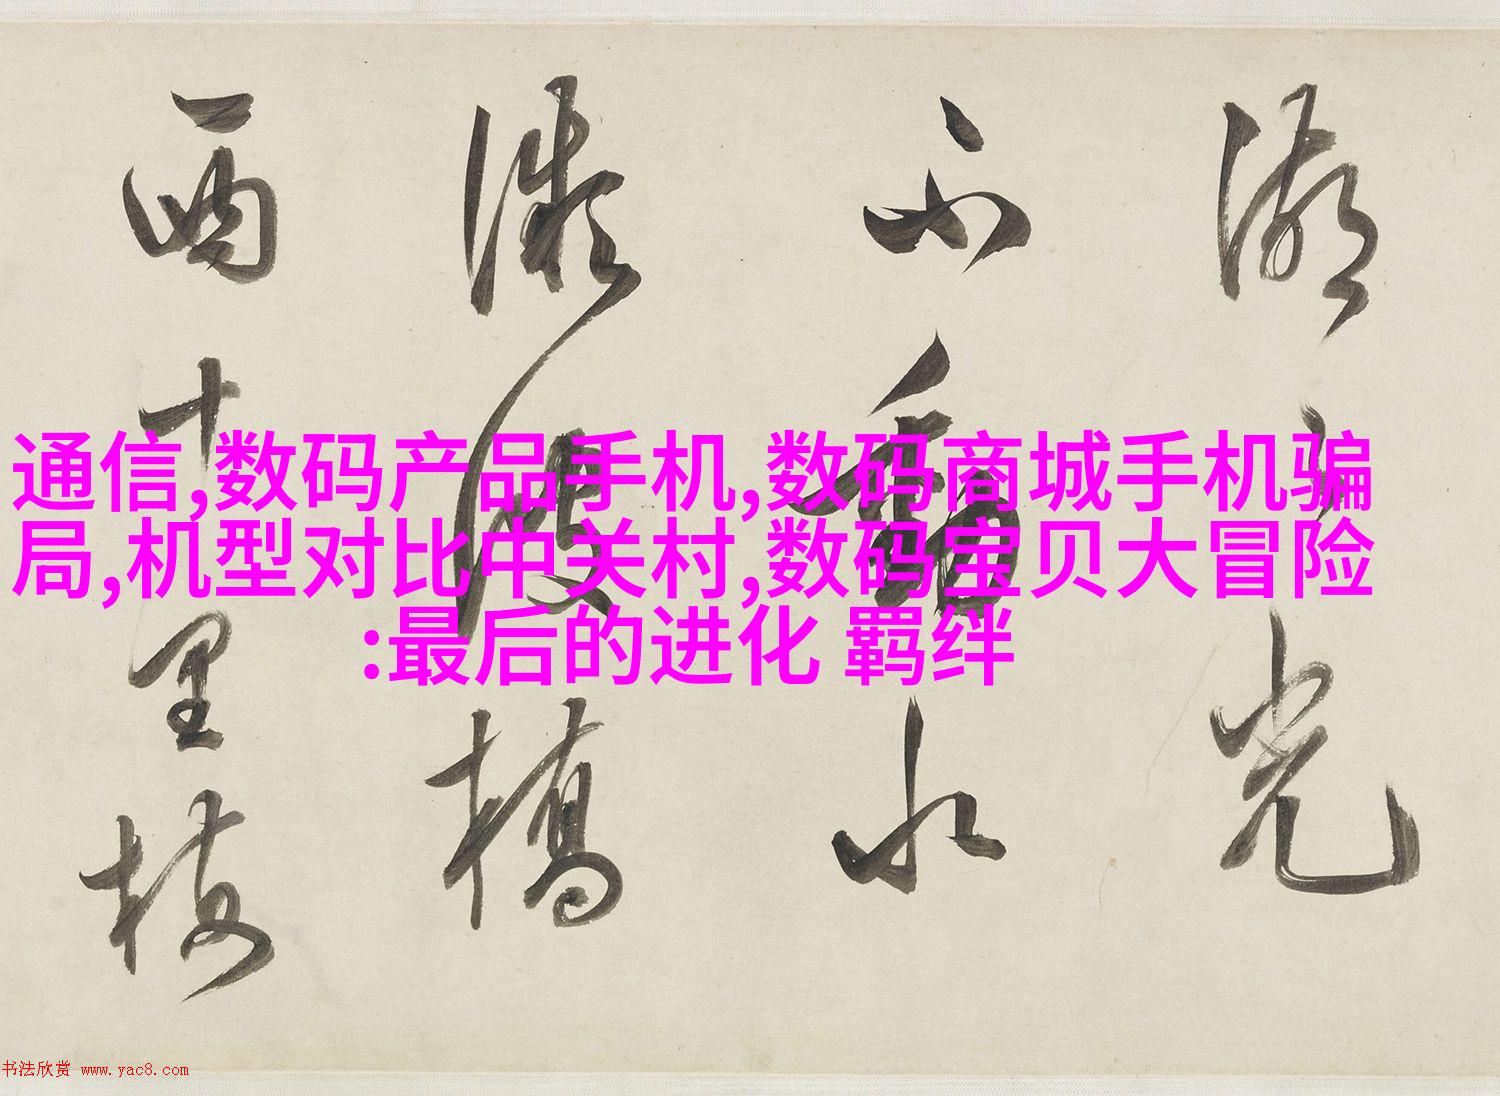 通信,数码产品手机,数码商城手机骗
局,机型对比中关村,数码宝贝大冒险
:最后的进化 羁绊
湖光
不動水
橋
西十里梅
书法欣赏 www.yac8.com